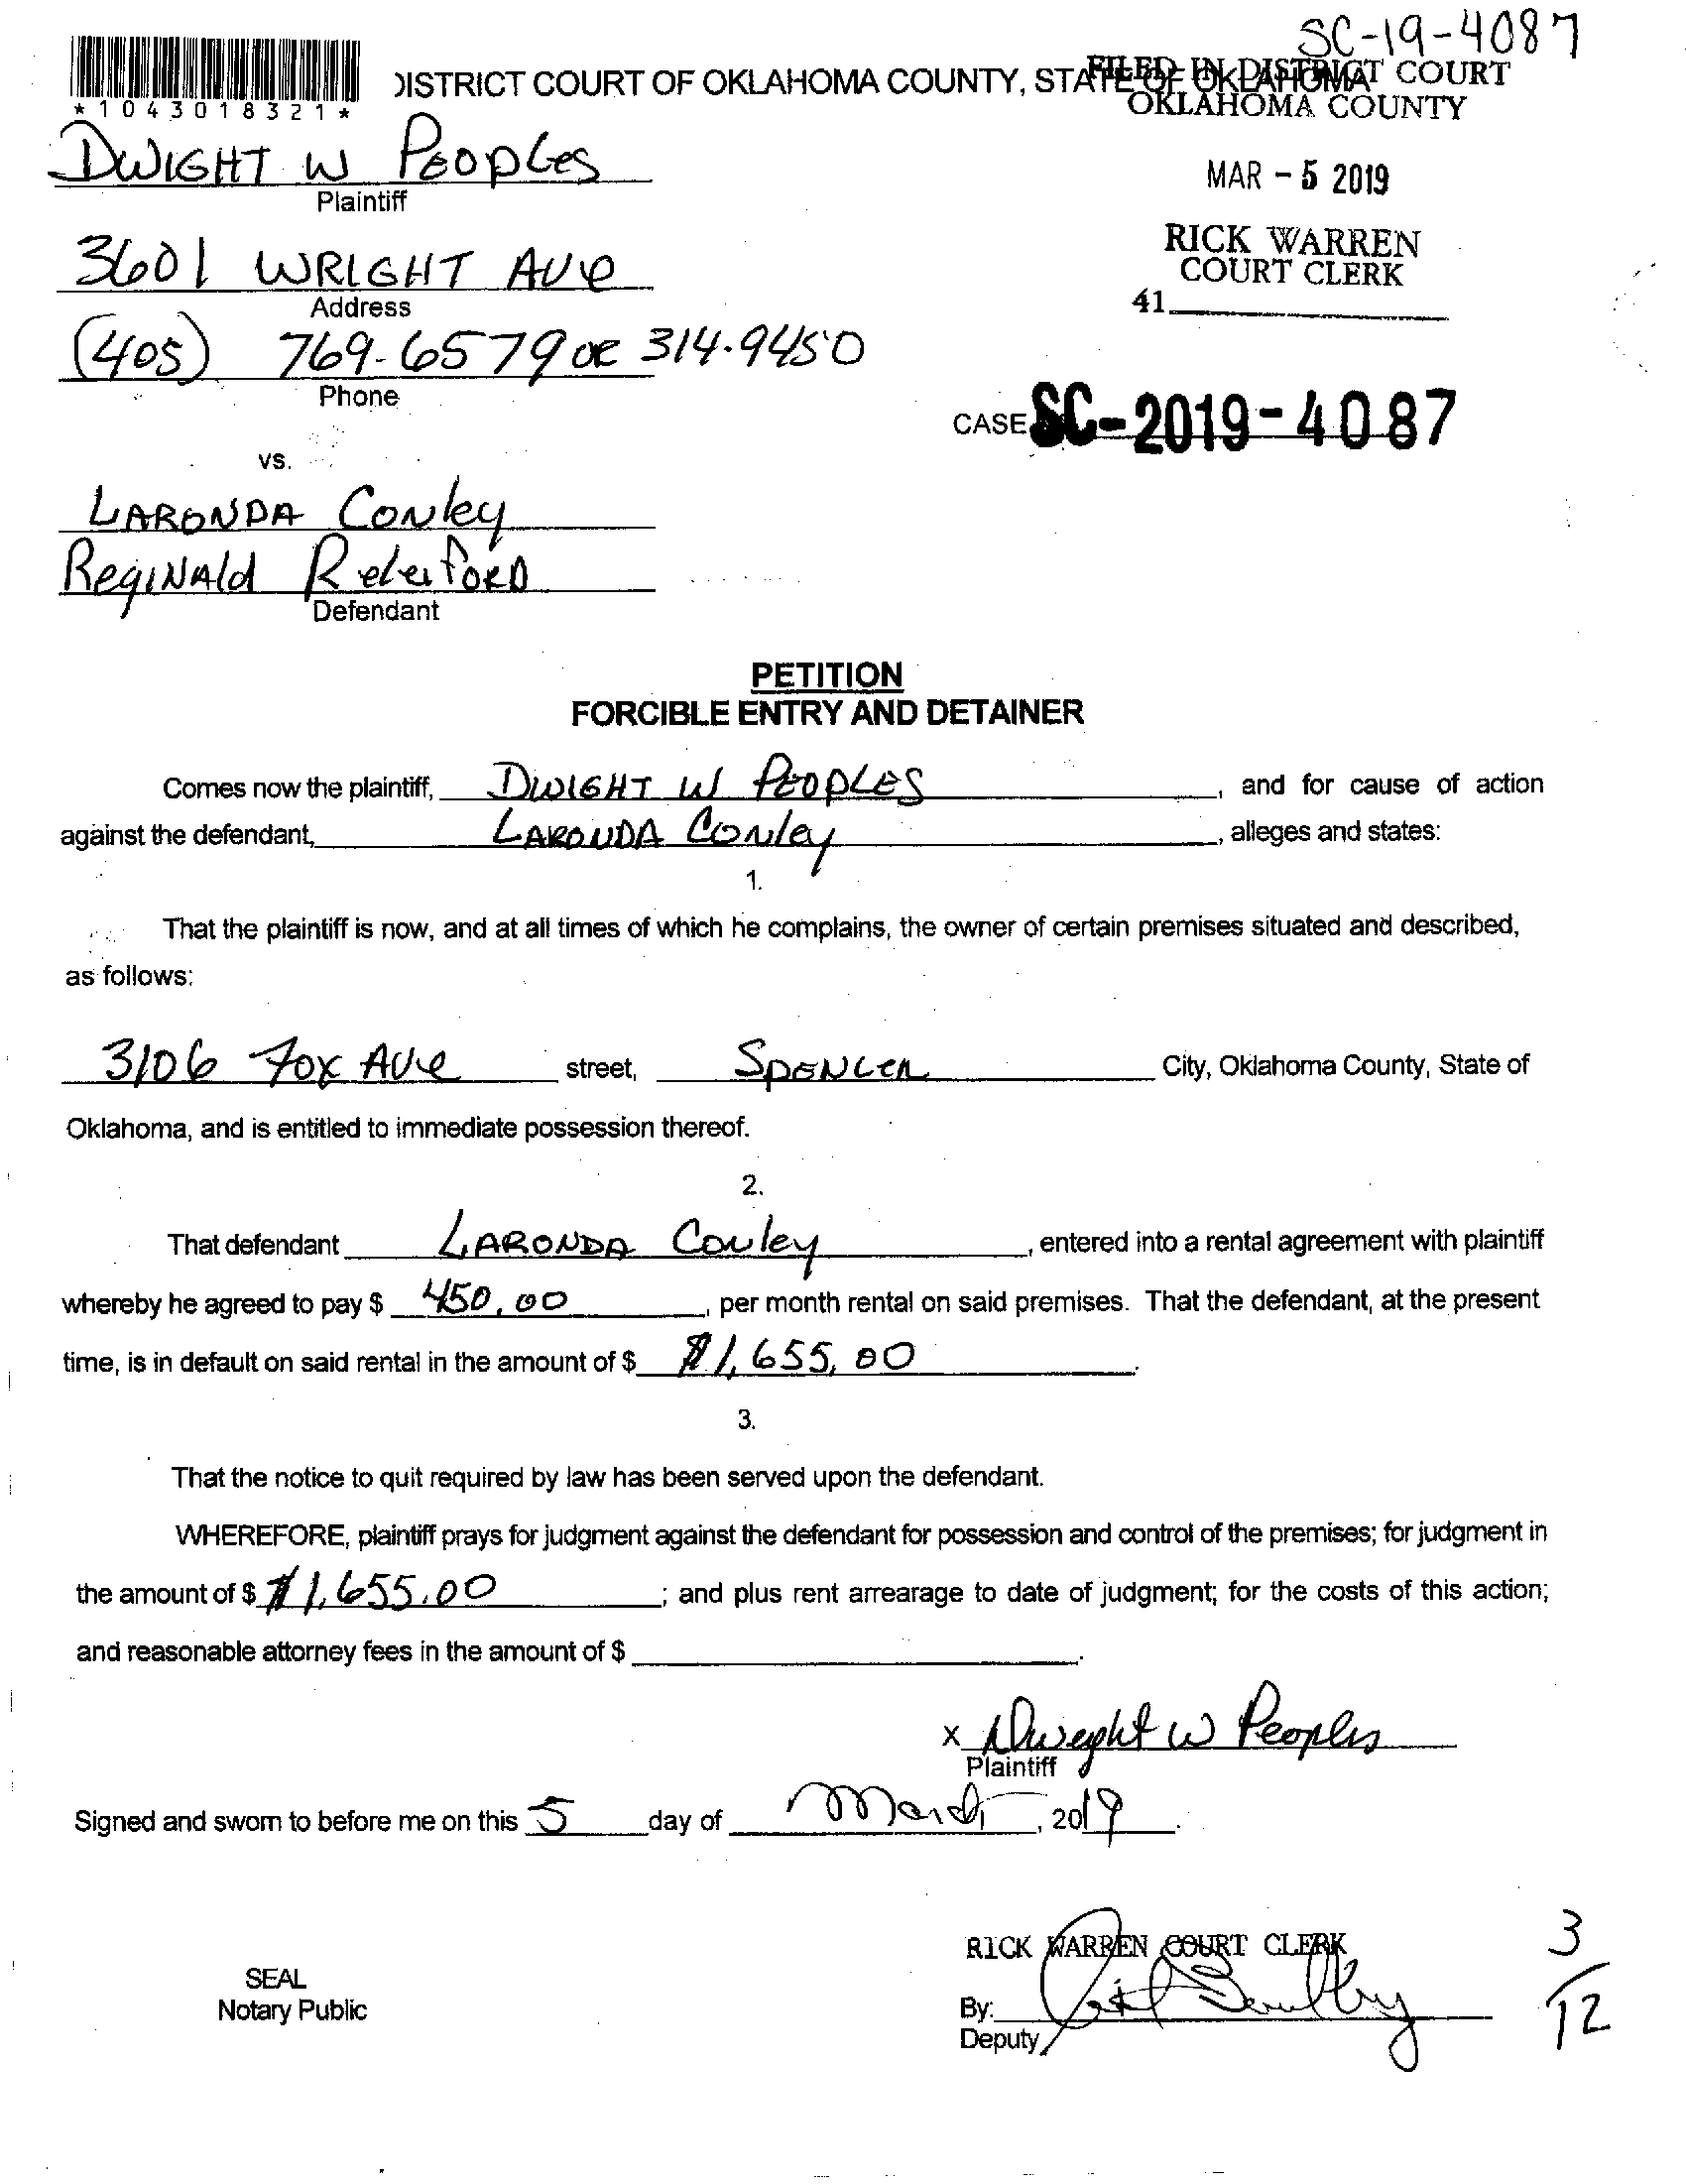 SC-19-4087
DISTRICT COURT OF OKLAHOMA COUNTY, STATE OF OKLAHOMA
FILED IN DISTRICT COURT
OKLAHOMA COUNTY
*1043018321*
DWIGHT W PEOPLES
Plaintiff
MAR - 5 2019
3601 WRIGHT AVE
Address
RICK WARREN
COURT CLERK
41
(405) 769-6579 OR 314-9450
Phone
CASE SC-2019-4087
vs.
LARONDA CONley
RegiNAld
Defendant
PETITION
FORCIBLE ENTRY AND DETAINER
Comes now the plaintiff, DWIGHT W PEOPLES, and for cause of action
against the defendant, LARONDA CONley, alleges and states:
1.
That the plaintiff is now, and at all times of which he complains, the owner of certain premises situated and described,
as follows:
3106 FOX AVE street, SPENCER City, Oklahoma County, State of
Oklahoma, and is entitled to immediate possession thereof.
2.
That defendant LARONDA Conley, entered into a rental agreement with plaintiff
whereby he agreed to pay $ 450.00, per month rental on said premises. That the defendant, at the present
time, is in default on said rental in the amount of $ $1,655.00.
3.
That the notice to quit required by law has been served upon the defendant.
WHEREFORE, plaintiff prays for judgment against the defendant for possession and control of the premises; for judgment in
the amount of $ $1,655.00; and plus rent arrearage to date of judgment; for the costs of this action;
and reasonable attorney fees in the amount of $ .
x Dwight W Peoples
Plaintiff
Signed and sworn to before me on this 5 day of March, 2019.
RICK WARREN COURT CLERK
SEAL
Notary Public
By:
Deputy
3
12